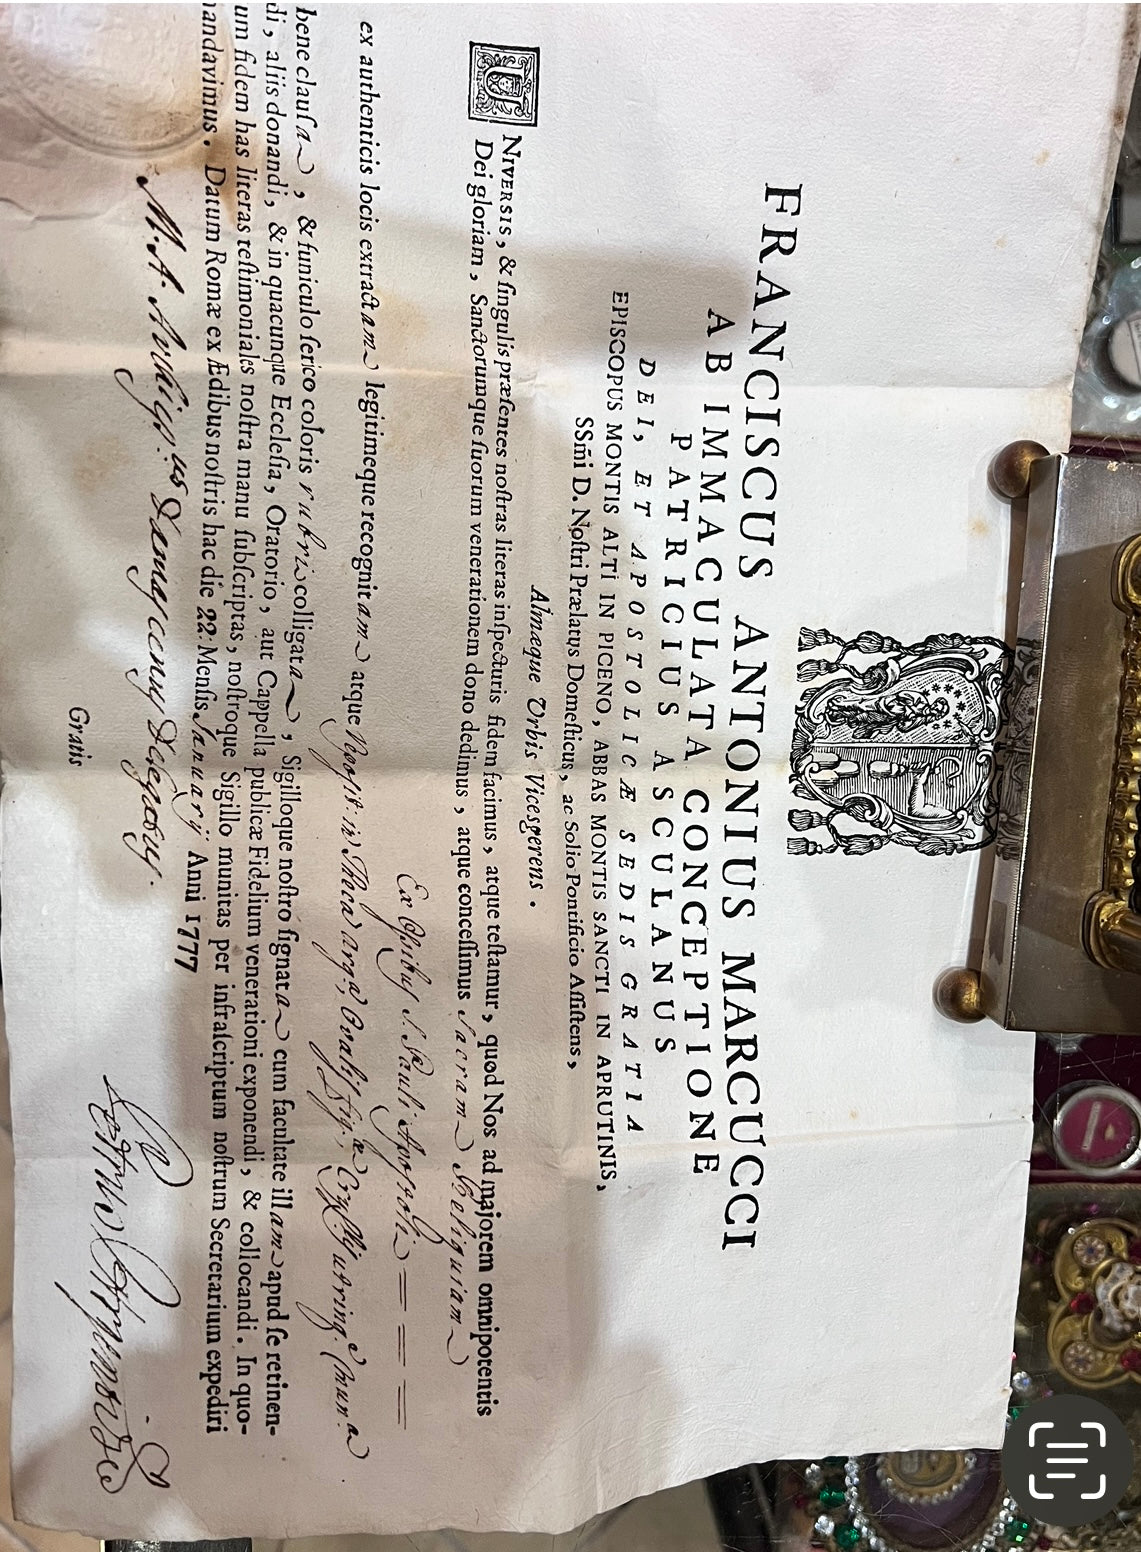 FRANCISCUS ANTONIUS MARCUCCI
AB IMMACULATA CONCEPTIONE
PATRICIUS ASCULANUS
DEI, ET APOSTOLICÆ SEDIS GRATIA
EPISCOPUS MONTIS ALTI IN PICENO, ABBAS MONTIS SANCTI IN APRUTINIS,
SSm̃i D. Noſtri Prælatus Domeſticus, ac Solio Pontificio Aſſiſtens,
Almæque Urbis Viceſgerens.
UNIVERSIS, & ſingulis præſentes noſtras literas inſpecturis fidem facimus, atque teſtamur, quod Nos ad majorem omnipotentis
Dei gloriam, Sanctorumque ſuorum venerationem dono dedimus, atque conceſſimus Sacram Reliquiam
Ex Oſsibus S. Pauli Apostoli = = =
ex authenticis locis extractam legitimeque recognitam atque reposit. in Theca arg.ª Ovalis fig.æ Cryſt. utrinq.
bene clauſa, & funiculo ſerico coloris rubri colligata, Sigilloque noſtro ſignata cum facultate illam apud ſe retinen-
di, aliis donandi, & in quacunque Eccleſia, Oratorio, aut Cappella publicæ Fidelium venerationi exponendi, & collocandi. In quo-
um fidem has literas teſtimoniales noſtra manu ſubſcriptas, noſtroque Sigillo munitas per infraſcriptum noſtrum Secretarium expediri
mandavimus. Datum Romæ ex Ædibus noſtris hac die 22. Menſis Januarij Anni 1777
M. A. Archiep.us Damascenus Delegatus.
Gratis